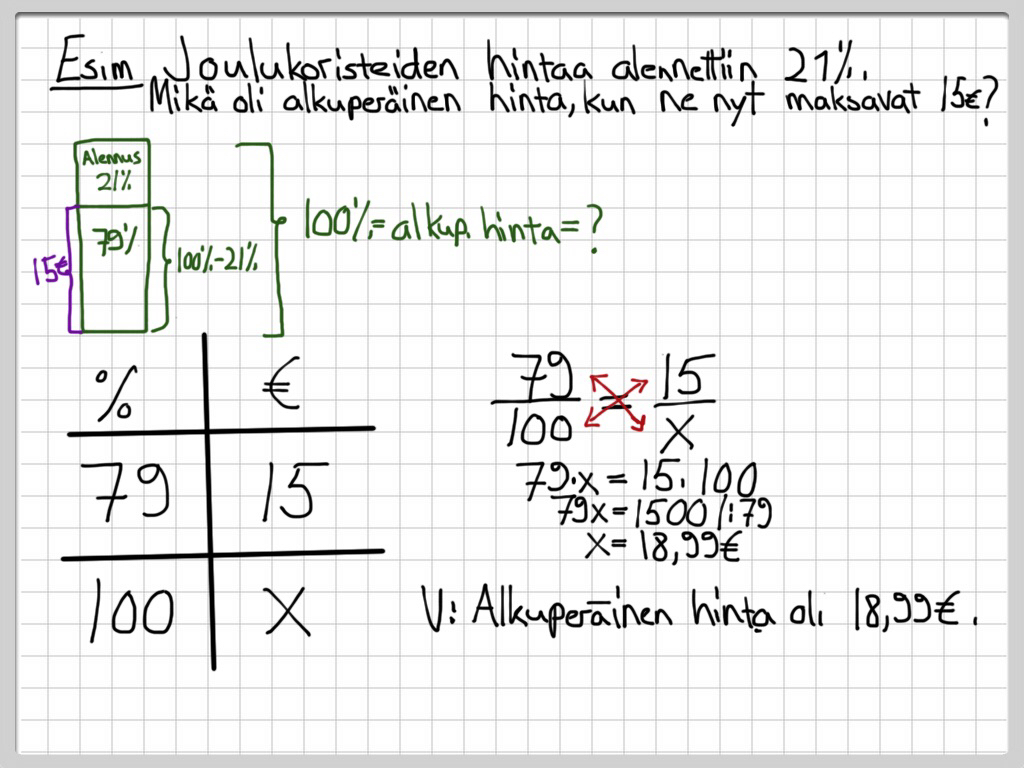 Esim Joulukoristeiden hintaa alennettiin 21%.
Mikä oli alkuperäinen hinta, kun ne nyt maksavat 15€?
Alennus
21%
79%
15€
100%-21%
100%=alkup. hinta=?
% €
79 15
100 X
79/100 = 15/X
79·x = 15·100
79x=1500 /:79
x= 18,99€
V: Alkuperäinen hinta oli 18,99€.